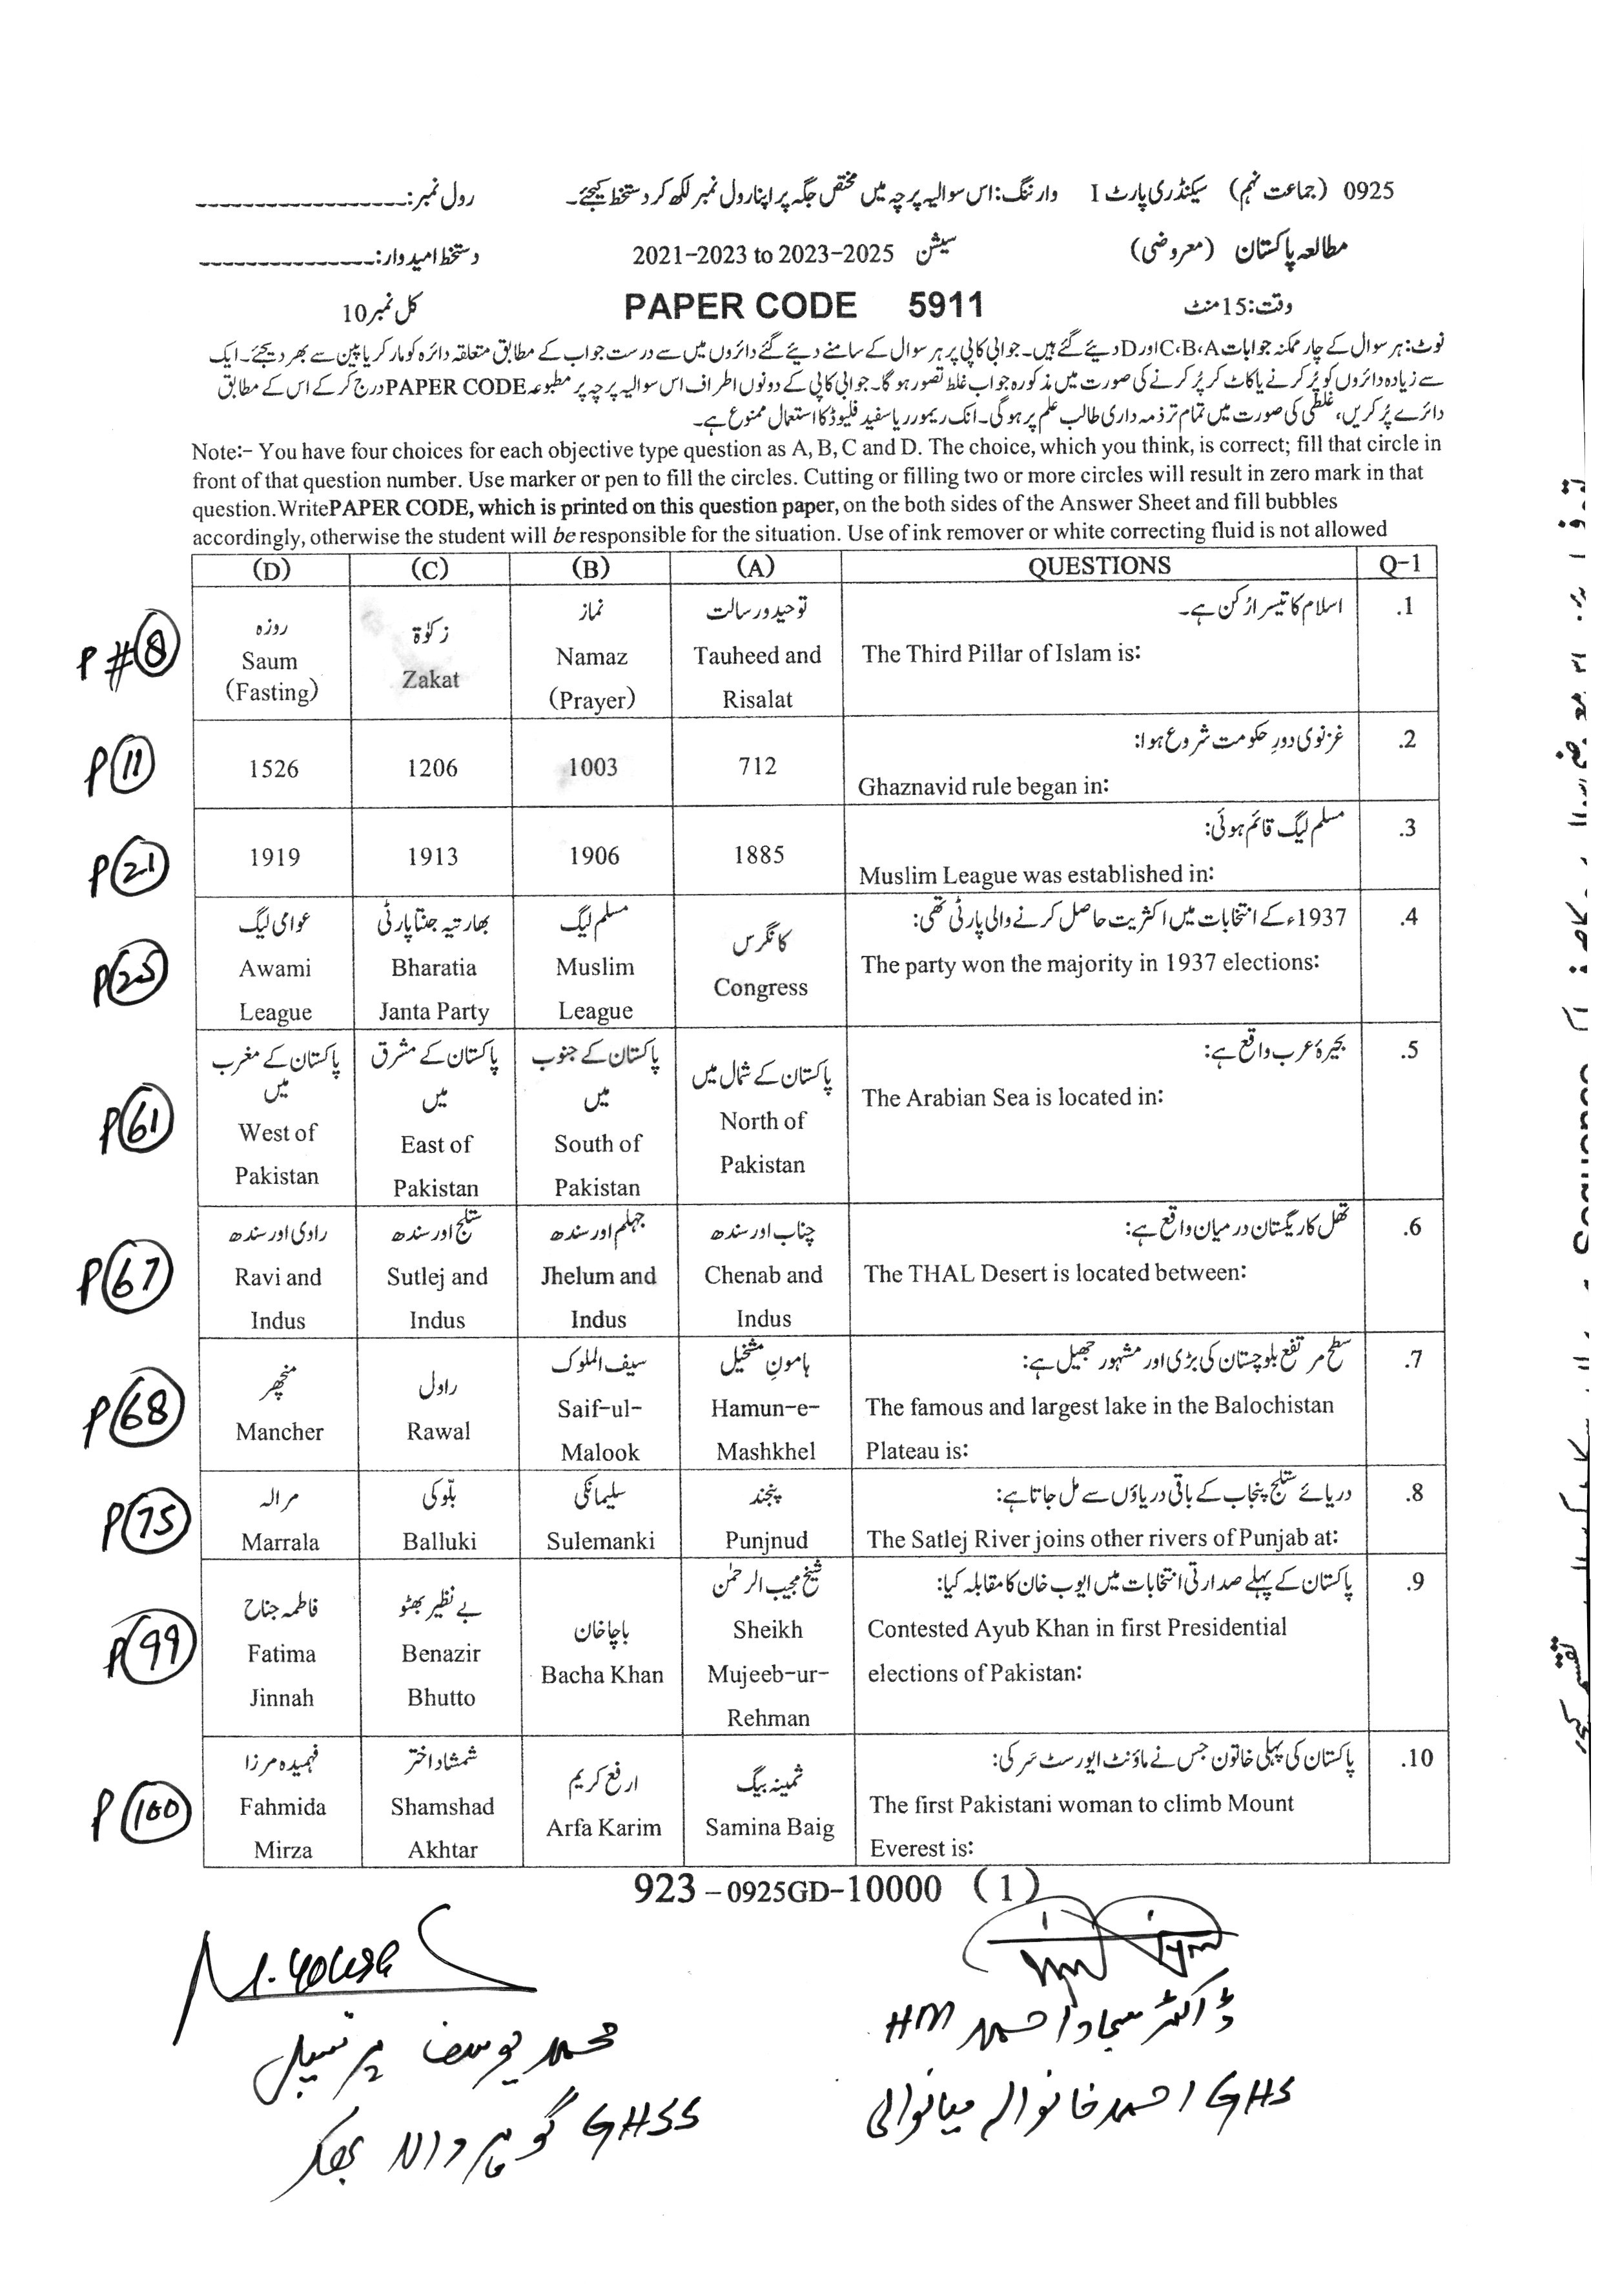 0925 (جماعت نہم) سیکنڈری پارٹ I وارننگ: اس سوالیہ پرچہ میں مختص جگہ پر اپنا رول نمبر لکھ کر دستخط کیجئے۔ رول نمبر:
مطالعہ پاکستان (معروضی) سیشن 2021-2023 to 2023-2025 دستخط امیدوار:
وقت: 15 منٹ PAPER CODE 5911 کل نمبر 10
نوٹ: ہر سوال کے چار ممکنہ جوابات C،B،A اور D دیئے گئے ہیں۔ جوابی کاپی پر ہر سوال کے سامنے دیئے گئے دائروں میں سے درست جواب کے مطابق متعلقہ دائرہ کو مارکر یا پین سے بھر دیجئے۔ ایک
سے زیادہ دائروں کو پُر کرنے یا کاٹ کر پُر کرنے کی صورت میں مذکورہ جواب غلط تصور ہوگا۔ جوابی کاپی کے دونوں اطراف اس سوالیہ پرچہ پر مطبوعہ PAPER CODE درج کر کے اس کے مطابق
دائرے پُر کریں، غلطی کی صورت میں تمام تر ذمہ داری طالب علم پر ہوگی۔ انک ریموور یا سفید فلیوڈ کا استعمال ممنوع ہے۔
Note:- You have four choices for each objective type question as A, B, C and D. The choice, which you think, is correct; fill that circle in
front of that question number. Use marker or pen to fill the circles. Cutting or filling two or more circles will result in zero mark in that
question.WritePAPER CODE, which is printed on this question paper, on the both sides of the Answer Sheet and fill bubbles
accordingly, otherwise the student will be responsible for the situation. Use of ink remover or white correcting fluid is not allowed
(D) (C) (B) (A) QUESTIONS Q-1
.1 اسلام کا تیسرا رُکن ہے۔
The Third Pillar of Islam is:
توحید و رسالت
Tauheed and
Risalat
نماز
Namaz
(Prayer)
زکوٰۃ
Zakat
روزہ
Saum
(Fasting)
P#8
.2 غزنوی دورِ حکومت شروع ہوا:
Ghaznavid rule began in:
712
1003
1206
1526
P 11
.3 مسلم لیگ قائم ہوئی:
Muslim League was established in:
1885
1906
1913
1919
P 21
.4 1937ء کے انتخابات میں اکثریت حاصل کرنے والی پارٹی تھی:
The party won the majority in 1937 elections:
کانگرس
Congress
مسلم لیگ
Muslim
League
بھارتیہ جنتا پارٹی
Bharatia
Janta Party
عوامی لیگ
Awami
League
P 25
.5 بحیرۂ عرب واقع ہے:
The Arabian Sea is located in:
پاکستان کے شمال میں
North of
Pakistan
پاکستان کے جنوب
میں
South of
Pakistan
پاکستان کے مشرق
میں
East of
Pakistan
پاکستان کے مغرب
میں
West of
Pakistan
P 61
.6 تھل کا ریگستان درمیان واقع ہے:
The THAL Desert is located between:
چناب اور سندھ
Chenab and
Indus
جہلم اور سندھ
Jhelum and
Indus
ستلج اور سندھ
Sutlej and
Indus
راوی اور سندھ
Ravi and
Indus
P 67
.7 سطح مرتفع بلوچستان کی بڑی اور مشہور جھیل ہے:
The famous and largest lake in the Balochistan
Plateau is:
ہامونِ مشخیل
Hamun-e-
Mashkhel
سیف الملوک
Saif-ul-
Malook
راول
Rawal
منچھر
Mancher
P 68
.8 دریائے ستلج پنجاب کے باقی دریاؤں سے مل جاتا ہے:
The Satlej River joins other rivers of Punjab at:
پنجند
Punjnud
سلیمانکی
Sulemanki
بلّوکی
Balluki
مرالہ
Marrala
P 75
.9 پاکستان کے پہلے صدارتی انتخابات میں ایوب خان کا مقابلہ کیا:
Contested Ayub Khan in first Presidential
elections of Pakistan:
شیخ مجیب الرحمٰن
Sheikh
Mujeeb-ur-
Rehman
باچا خان
Bacha Khan
بے نظیر بھٹو
Benazir
Bhutto
فاطمہ جناح
Fatima
Jinnah
P 99
.10 پاکستان کی پہلی خاتون جس نے ماؤنٹ ایورسٹ سَر کی:
The first Pakistani woman to climb Mount
Everest is:
ثمینہ بیگ
Samina Baig
ارفع کریم
Arfa Karim
شمشاد اختر
Shamshad
Akhtar
فہمیدہ مرزا
Fahmida
Mirza
P 100
923-0925GD-10000 (1)
ڈاکٹر سجاد احمد HM
GHS احمد خانوالہ میانوالی
M. Yousaf
محمد یوسف پرنسپل
GHSS گوہر والا بھکر